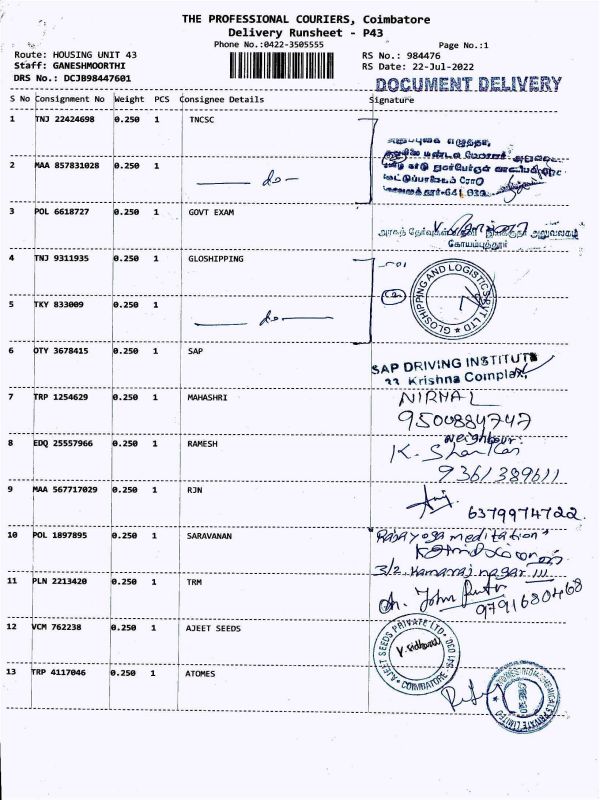 THE PROFESSIONAL COURIERS, Coimbatore
Delivery Runsheet - P43
Phone No.:0422-3505555
Page No.:1
Route: HOUSING UNIT 43
RS No.: 984476
Staff: GANESHMOORTHI
RS Date: 22-Jul-2022
DRS No.: DCJB98447601
DOCUMENT DELIVERY
S No Consignment No Weight PCS Consignee Details Signature
1 TNJ 22424698 0.250 1 TNCSC
2 MAA 857831028 0.250 1 do
3 POL 6618727 0.250 1 GOVT EXAM
அலுவலகம்
கோயம்புத்தூர்
4 TNJ 9311935 0.250 1 GLOSHIPPING
GLOSHIPPING AND LOGISTICS PVT LTD
5 TKY 833009 0.250 1 do
6 OTY 3678415 0.250 1 SAP
SAP DRIVING INSTITUTE
33 Krishna Complex,
7 TRP 1254629 0.250 1 MAHASHRI
NIRMAL
9500884747
neighbour
8 EDQ 25557966 0.250 1 RAMESH
9361389611
9 MAA 567717029 0.250 1 RJN
6379974722
10 POL 1897895 0.250 1 SARAVANAN
"Rajayoga meditation"
3/2 Kamaraj nagar III
11 PLN 2213420 0.250 1 TRM
John
9791680468
12 VCM 762238 0.250 1 AJEET SEEDS
AJEET SEEDS PRIVATE LTD
COIMBATORE
13 TRP 4117046 0.250 1 ATOMES